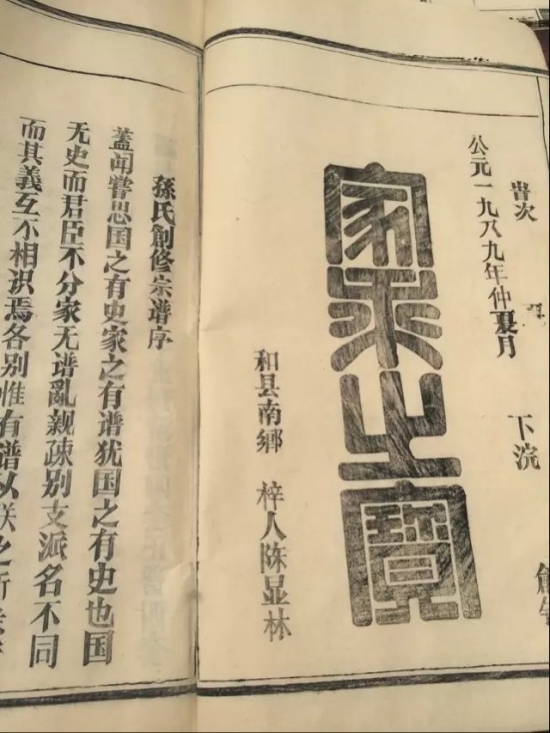 旹次
下浣
公元一九八九年仲夏月
家乘之寶
和县南鄉 梓人陈显林
孫氏創修宗谱序
蓋闻嘗思国之有史家之有谱犹国之有史也国
无史而君臣不分家无谱亂親疎别支派名不同
而其義互不相识焉各别惟有谱以联之所